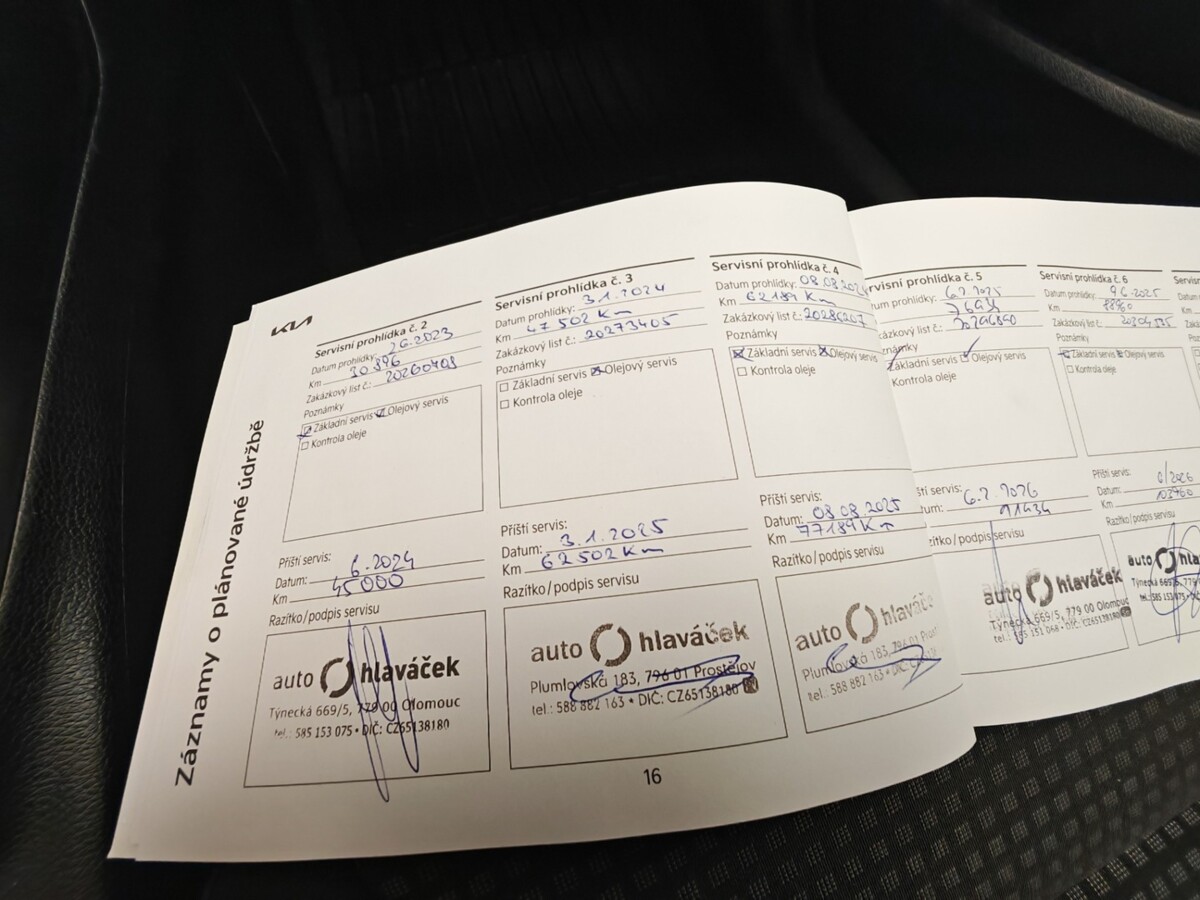 Záznamy o plánované údržbě
KIA
Servisní prohlídka č. 2
Datum prohlídky: 2.6.2023
Km 30 896
Zakázkový list č.: 20260408
Poznámky
Základní servis Olejový servis
Kontrola oleje
Příští servis:
Datum: 6.2024
Km 45 000
Razítko/podpis servisu
auto hlaváček
Týnecká 669/5, 779 00 Olomouc
tel.: 585 153 075 • DIČ: CZ65138180
Servisní prohlídka č. 3
Datum prohlídky: 3.1.2024
Km 47 502 Km
Zakázkový list č.: 20273405
Poznámky
Základní servis Olejový servis
Kontrola oleje
Příští servis:
Datum: 3.1.2025
Km 62 502 Km
Razítko/podpis servisu
auto hlaváček
Plumlovská 183, 796 01 Prostějov
tel.: 588 882 163 • DIČ: CZ65138180
16
Servisní prohlídka č. 4
Datum prohlídky: 08.08.2024
Km 62 189 Km
Zakázkový list č.: 20286207
Poznámky
Základní servis Olejový servis
Kontrola oleje
Příští servis:
Datum: 08.08.2025
Km 77189 Km
Razítko/podpis servisu
auto hlaváče
Plumlovská 183, 796 01 Prost
tel.: 588 882 163 • DIČ: CZ
rvisní prohlídka č. 5
tum prohlídky: 6.2.2025
kázkový list č.:
známky
Základní servis Olejový servis
Kontrola oleje
ští servis:
tum: 6.2.2026
91434
zítko/podpis servisu
auto hlaváček
Týnecká 669/5, 779 00 Olomouc
DIČ: CZ65138180
Servisní prohlídka č. 6
Datum prohlídky: 9.6.2025
Km
Zakázkový list č.:
Poznámky
Základní servis Olejový servis
Kontrola oleje
Příští servis:
Datum: 6/2026
Km
Razítko/podpis servisu
auto hla
Týnecká 669/5, 779
Servisn
Datum
Km